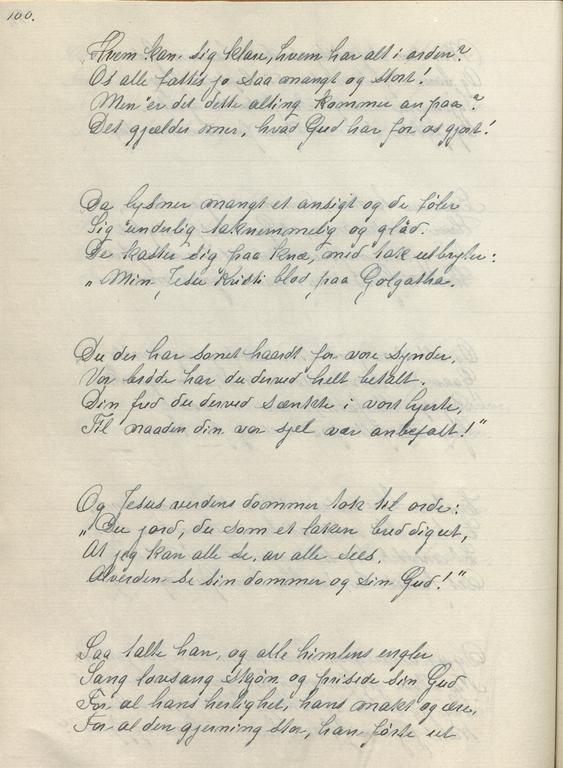 100.
Hvem kan sig klare, hvem har alt i orden?
Os alle fattes jo saa mangt og stort!
Men er det dette alting kommer an paa?
Det gjælder mer, hvad Gud har for os gjort!
Da lysner mangt et ansigt og de føler
Sig underlig taknemmelig og glad.
De kaster sig paa knæ, med tak utbryter:
"Min Jesu Kristi blod paa Golgatha.
Du der har sonet haardt for vore synder,
Vor brøde har du derved helt betalt.
Din fred du derved sænkte i vort hjerte,
Til naaden din vor sjel vær anbefalt!"
Og Jesus verdens dommer tok til orde:
"Du jord, du som et laken bred dig ut,
At jeg kan alle se, av alle sees.
Alverden se sin dommer og sin Gud!"
Saa talte han, og alle himlens engler
Sang lovsang skjøn og prisede sin Gud
For al hans herlighet, hans makt og ære,
For al den gjerning stor, han førte ut